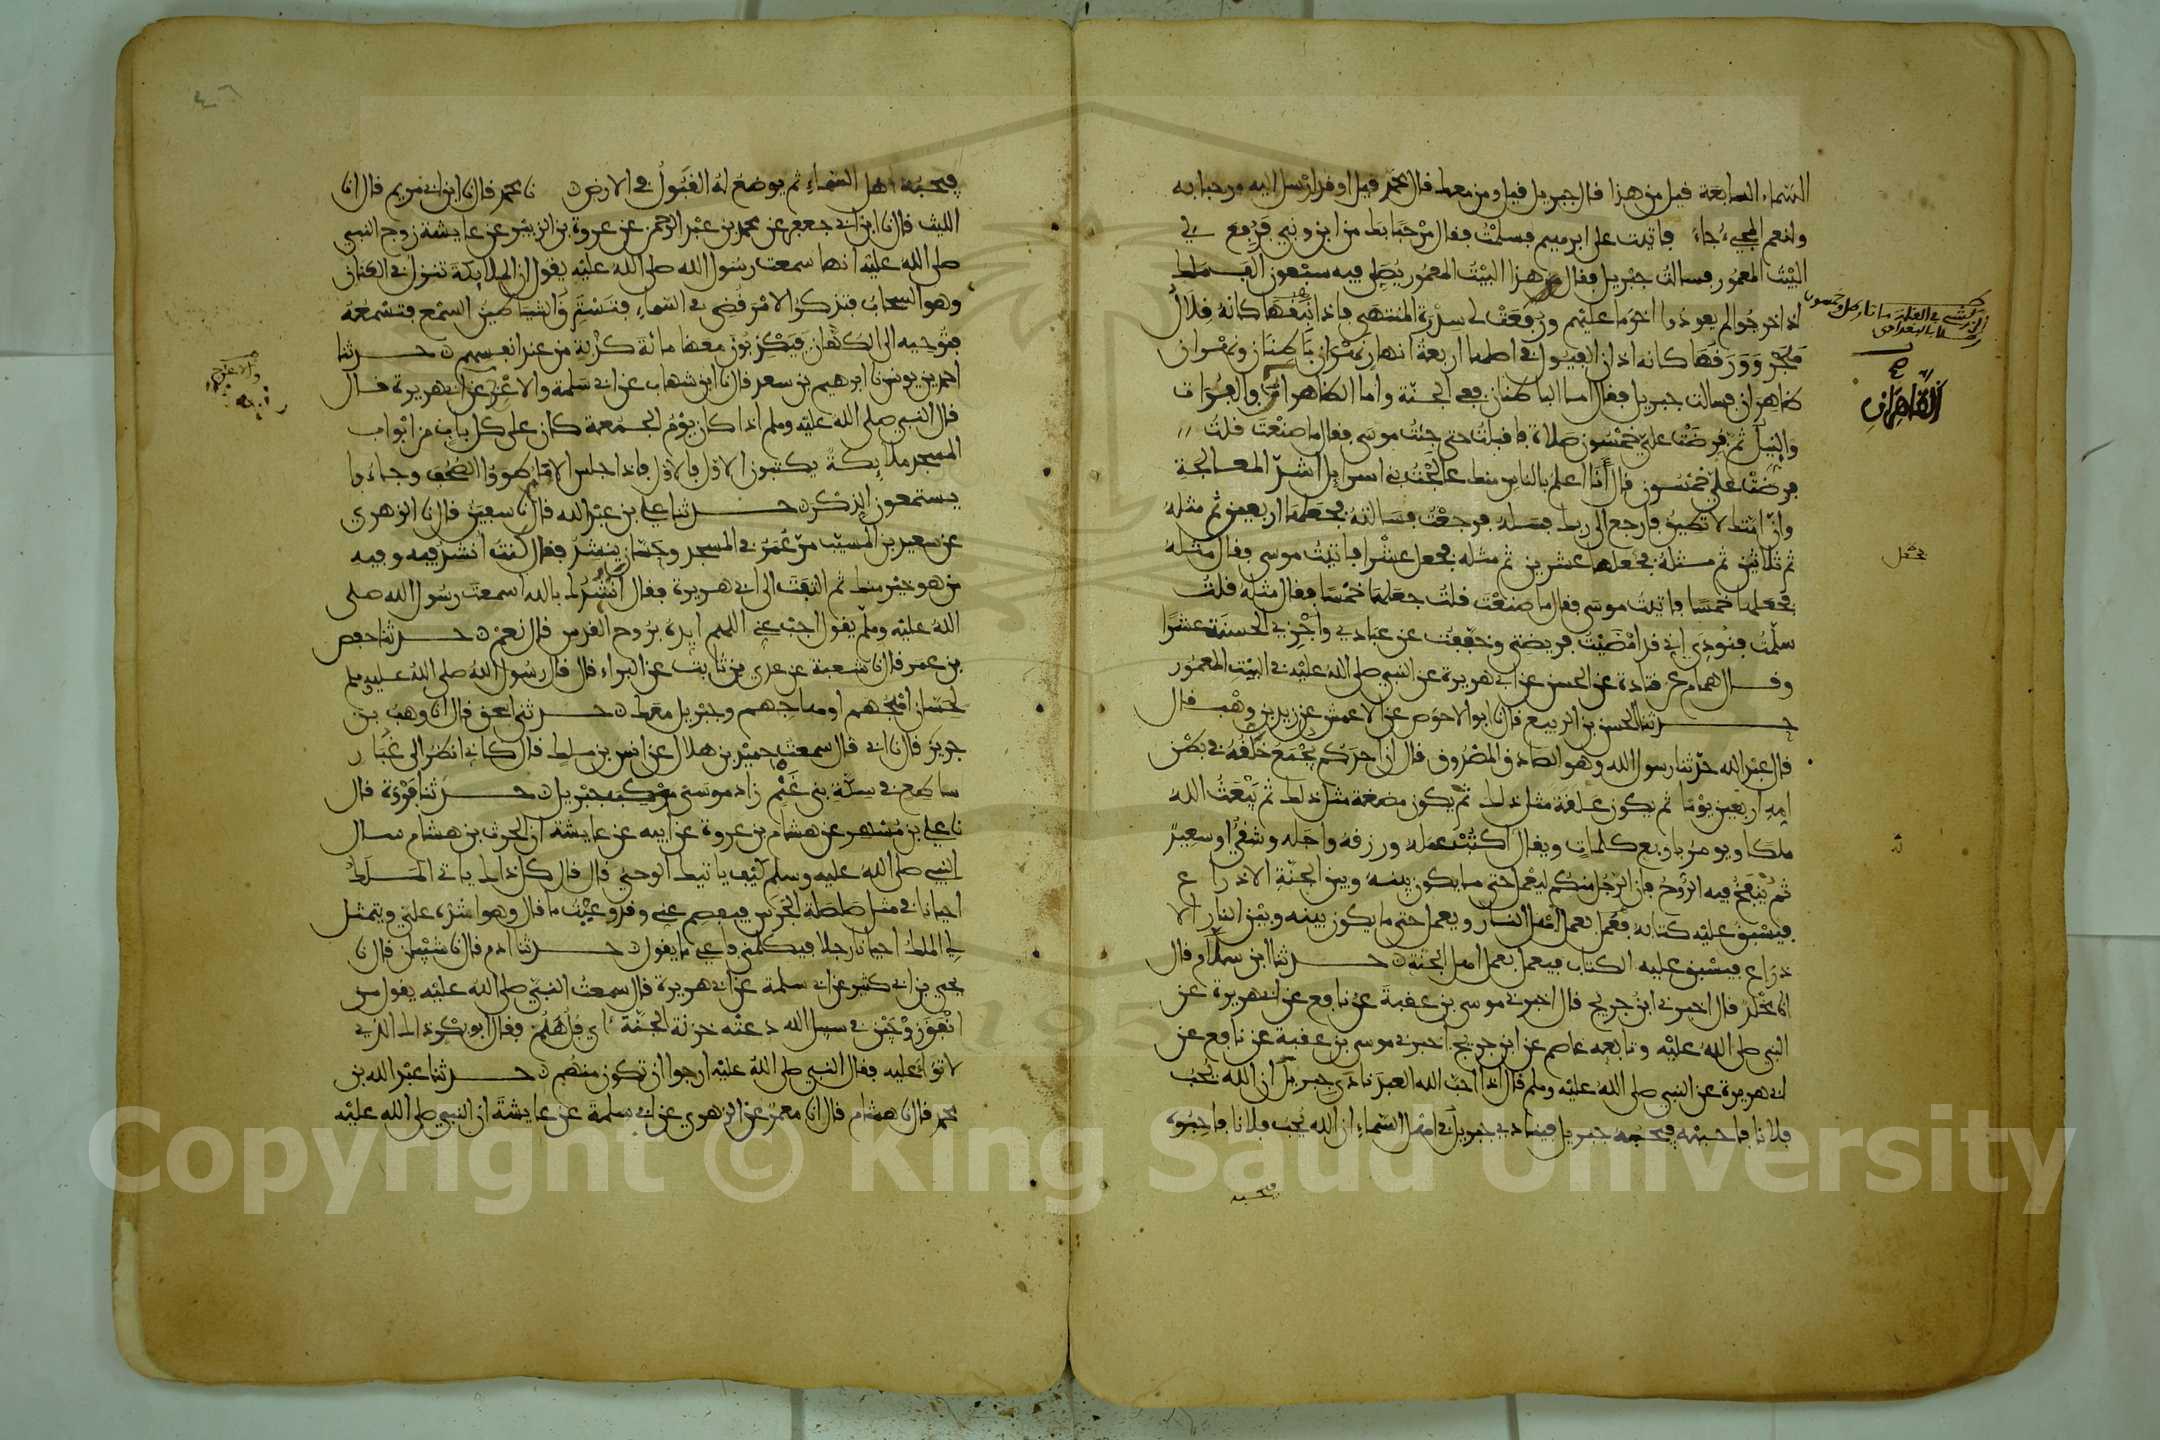 السماء السابعة قيل من هذا قال جبريل قيل ومن معك قال محمد قيل اوقد ارسل اليه مرحبا به
ولنعم المجيء جاء فاتيت على ابرهيم فسلمت فقال مرحبا بك من ابن ونبي فرفع لي
البيت المعمور فسالت جبريل فقال هذا البيت المعمور يصلي فيه سبعون الف ملك
اذا خرجوا لم يعودوا اخر ما عليهم ورفعت لي سدرة المنتهى فاذا نبقها كانه قلال
هجر وورقها كانه اذان الفيول في اصلها اربعة انهار نهران باطنان ونهران
ظاهران فسالت جبريل فقال اما الباطنان ففي الجنة واما الظاهران فالفرات
والنيل ثم فرضت علي خمسون صلاة فاقبلت حتى جئت موسى فقال ما صنعت قلت
فرضت علي خمسون قال انا اعلم بالناس منك عالجت بني اسرايل اشد المعالجة
وان امتك لا تطيق فارجع الى ربك فسله فرجعت فسالته فجعلها اربعين ثم مثله
ثم ثلاثين ثم مثله فجعلها عشرين ثم مثله فجعل عشرا فاتيت موسى فقال مثله
فجعلها خمسا فاتيت موسى فقال ما صنعت قلت جعلها خمسا فقال مثله قلت
سلمت فنودي اني قد امضيت فريضتي وخففت عن عبادي واجزي الحسنة عشرا
وقال همام عن قتادة عن الحسن عن ابي هريرة عن النبي صلى الله عليه في البيت المعمور
حدثنا الحسن بن الربيع قال نا ابو الاحوص عن الاعمش عن زيد بن وهب قال
قال عبد الله حدثنا رسول الله وهو الصادق المصدوق قال ان احدكم يجمع خلقه في بطن
امه اربعين يوما ثم يكون علقة مثل ذلك ثم يكون مضغة مثل ذلك ثم يبعث الله
ملكا ويومر باربع كلمات ويقال اكتب عمله ورزقه واجله وشقي او سعيد
ثم ينفخ فيه الروح فان الرجل منكم ليعمل حتى ما يكون بينه وبين الجنة الا ذراع
فيسبق عليه كتابه فيعمل بعمل اهل النار ويعمل حتى ما يكون بينه وبين النار الا
ذراع فيسبق عليه الكتاب فيعمل بعمل اهل الجنة حدثنا ابن سلام قال
انا مخلد قال اخبرني ابن جريج قال اخبرني موسى بن عقبة عن نافع عن ابي هريرة عن
النبي صلى الله عليه وتابعه عاصم عن ابن جريج اخبرني موسى بن عقبة عن نافع عن
ابي هريرة عن النبي صلى الله عليه وسلم قال اذا احب الله العبد نادى جبريل ان الله يحب
فلانا فاحببه فيحبه جبريل فينادي جبريل في اهل السماء ان الله يحب فلانا فاحبوه
فيحبه
الظاهران
فجعل
فيحبه اهل السماء ثم يوضع له القبول في الارض نا محمد قال نا ابن ابي مريم قال انا
الليث قال نا ابن ابي جعفر عن محمد بن عبد الرحمن عن عروة بن الزبير عن عايشة زوج النبي
صلى الله عليه انها سمعت رسول الله صلى الله عليه يقول ان الملايكة تنزل في العنان
وهو السحاب فتذكر الامر قضي في السماء فتسترق الشياطين السمع فتسمعه
فتوحيه الى الكهان فيكذبون معها مائة كذبة من عند انفسهم حدثنا
احمد بن يونس نا ابرهيم بن سعد قال نا ابن شهاب عن ابي سلمة والاغر عن ابي هريرة قال
قال النبي صلى الله عليه وسلم اذا كان يوم الجمعة كان على كل باب من ابواب
المسجد ملايكة يكتبون الاول فالاول فاذا جلس الامام طووا الصحف وجاءوا
يستمعون الذكر حدثنا علي بن عبد الله قال نا سفين قال نا الزهري
عن سعيد بن المسيب مر عمر في المسجد وحسان ينشد فقال كنت انشد فيه وفيه
من هو خير منك ثم التفت الى ابي هريرة فقال انشدك بالله اسمعت رسول الله صلى
الله عليه وسلم يقول اجب عني اللهم ايده بروح القدس قال نعم حدثنا حفص
بن عمر قال نا شعبة عن عدي بن ثابت عن البراء قال قال رسول الله صلى الله عليه وسلم
لحسان اهجهم او هاجهم وجبريل معك حدثنا اسحق قال انا وهب بن
جرير قال نا ابي قال سمعت حميد بن هلال عن انس بن ملك قال كاني انظر الى غبار
ساطع في سكة بني غنم زاد موسى موكب جبريل حدثنا فروة قال
نا علي بن مسهر عن هشام بن عروة عن ابيه عن عايشة ان الحرث بن هشام سال
النبي صلى الله عليه وسلم كيف ياتيك الوحي قال كل ذلك ياتي الملك
احيانا في مثل صلصلة الجرس فيفصم عني وقد وعيت ما قال وهو اشده علي ويتمثل
لي الملك احيانا رجلا فيكلمني فاعي ما يقول حدثنا ادم قال نا شيبان قال نا
يحيى بن ابي كثير عن ابي سلمة عن ابي هريرة قال سمعت النبي صلى الله عليه يقول من
انفق زوجين في سبيل الله دعته خزنة الجنة اي فل هلم فقال ابو بكر ذاك الذي
لا توى عليه فقال النبي صلى الله عليه ارجوا ان تكون منهم حدثنا عبد الله بن
محمد قال نا هشام قال نا معمر عن الزهري عن ابي سلمة عن عايشة ان النبي صلى الله عليه
Copyright © King Saud University